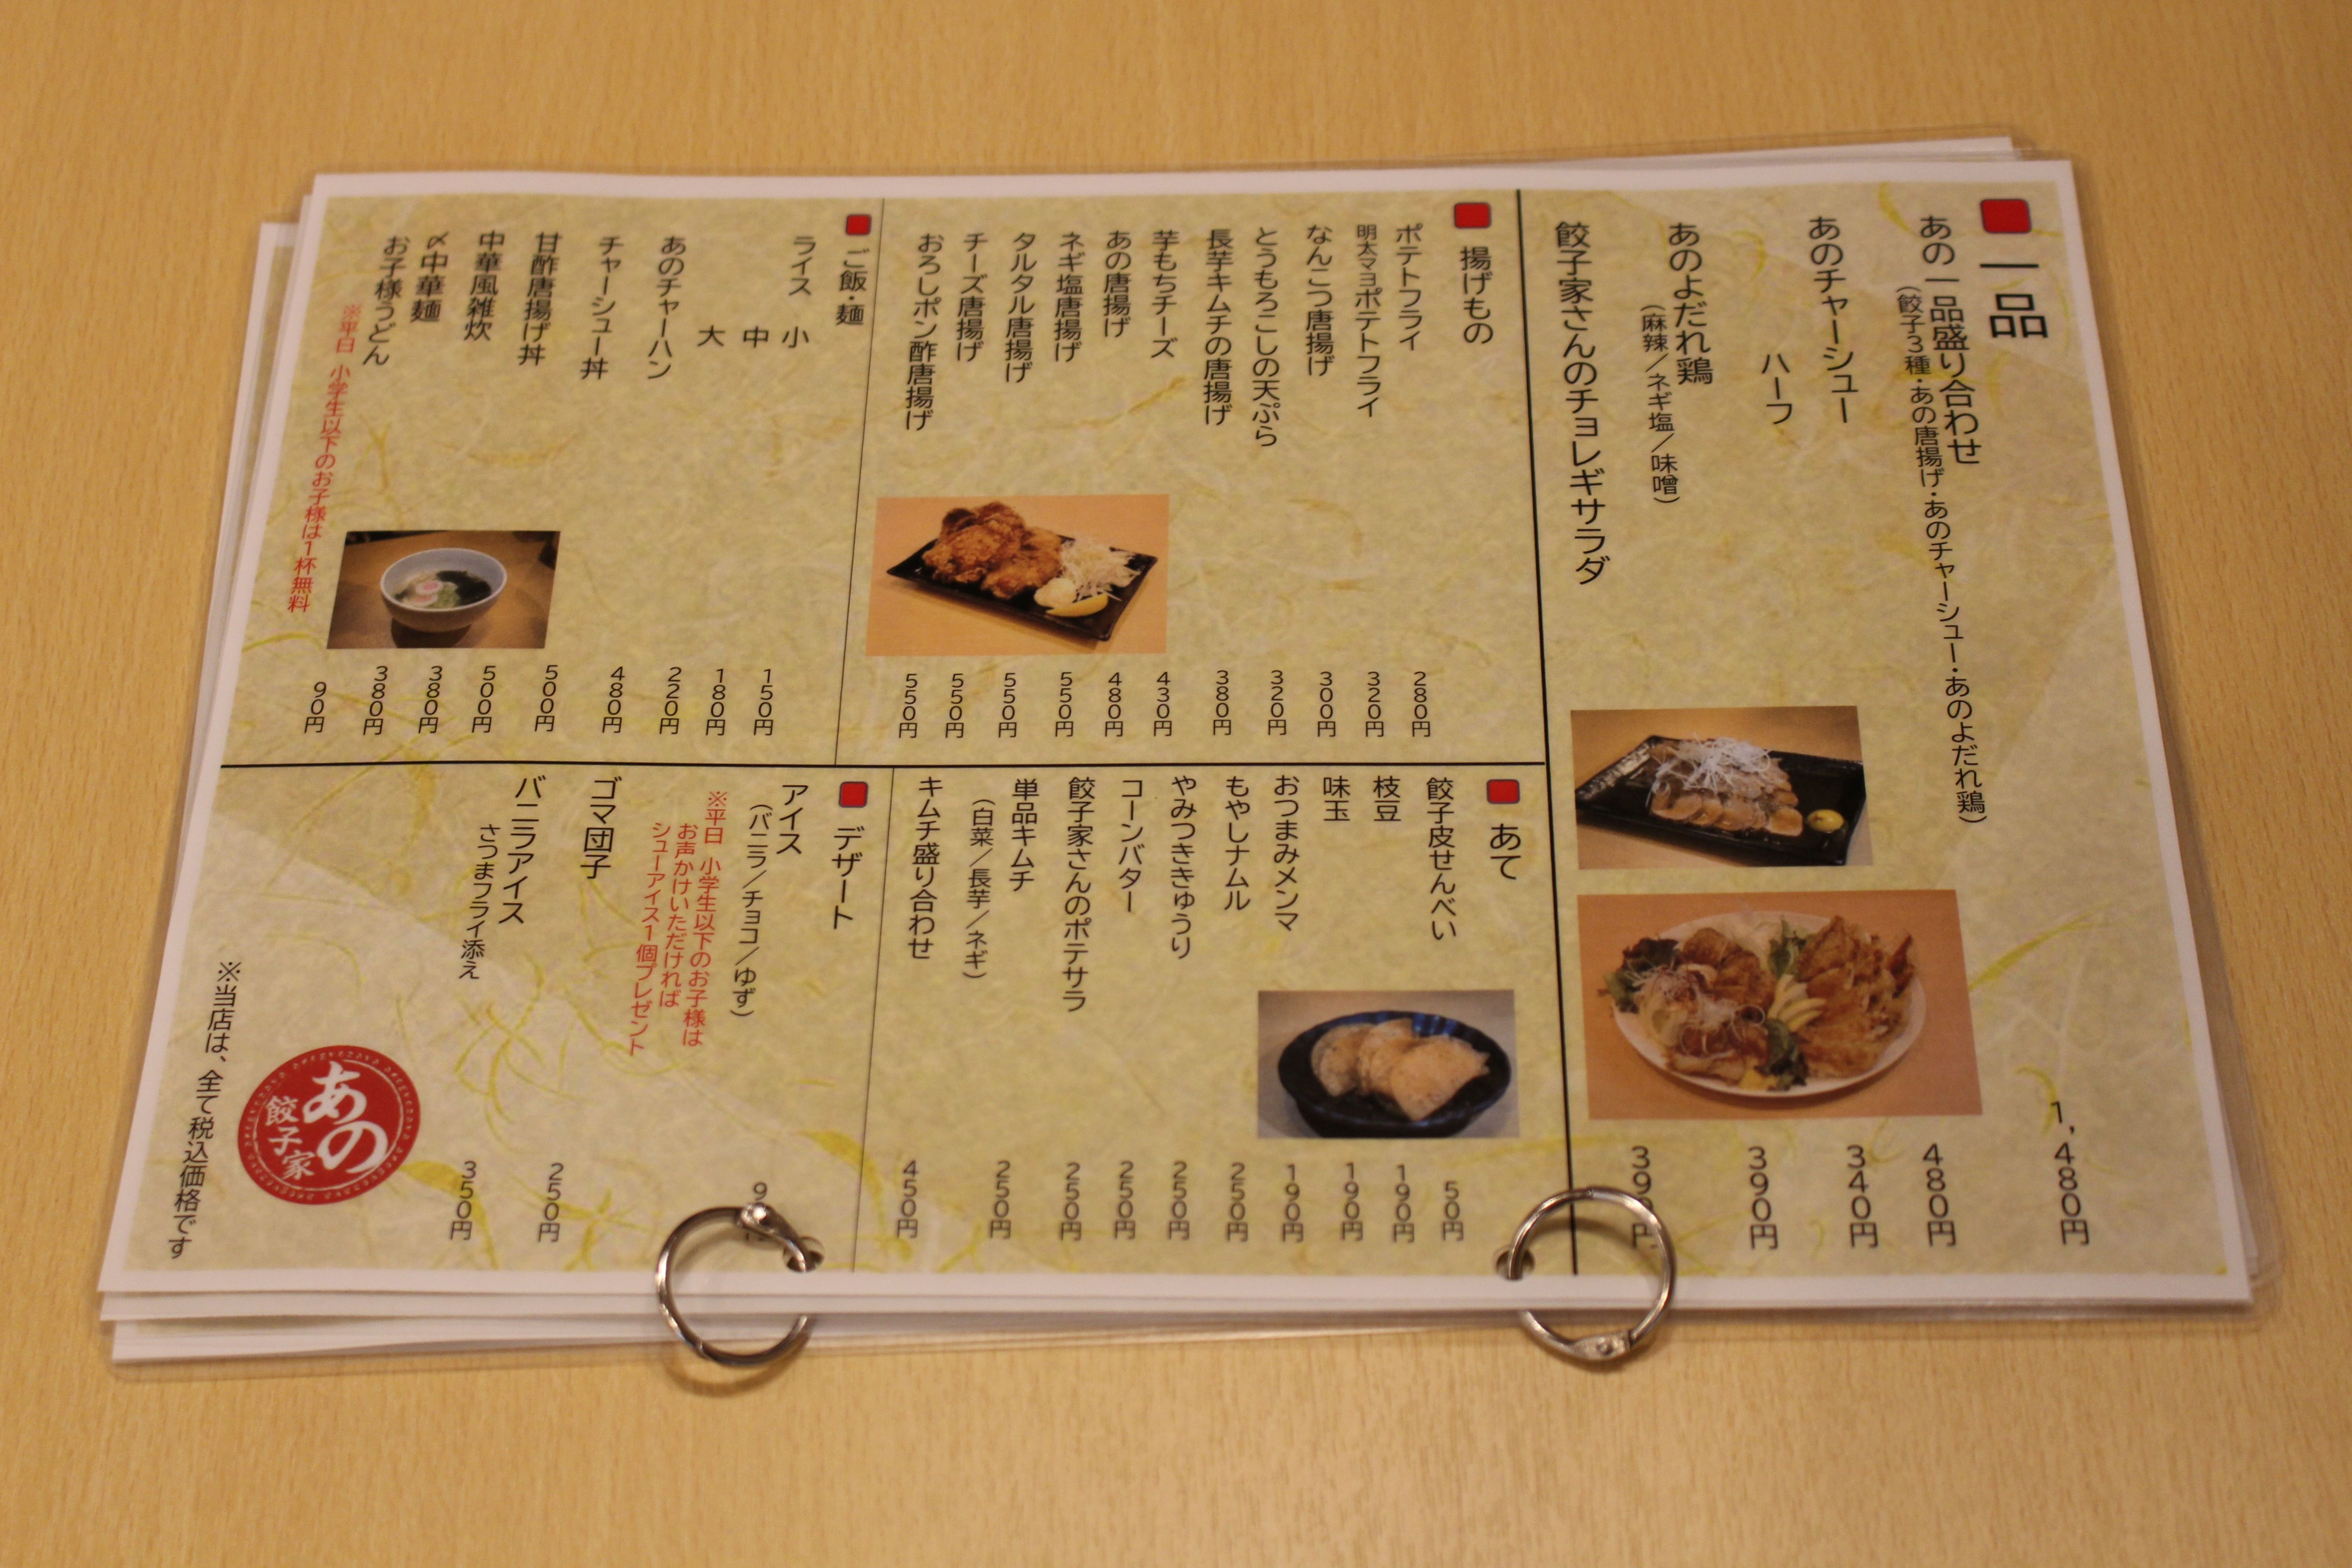 一品
あの一品盛り合わせ
（餃子3種・あの唐揚げ・あのチャーシュー・あのよだれ鶏）
1,480円
あのチャーシュー
480円
ハーフ
340円
あのよだれ鶏
（麻辣／ネギ塩／味噌）
390円
餃子家さんのチョレギサラダ
揚げもの
ポテトフライ
280円
明太マヨポテトフライ
320円
なんこつ唐揚げ
300円
とうもろこしの天ぷら
320円
長芋キムチの唐揚げ
380円
芋もちチーズ
430円
あの唐揚げ
480円
ネギ塩唐揚げ
550円
タルタル唐揚げ
550円
チーズ唐揚げ
550円
おろしポン酢唐揚げ
550円
ご飯・麺
ライス 小
150円
中
180円
大
220円
あのチャーハン
480円
チャーシュー丼
500円
甘酢唐揚げ丼
500円
中華風雑炊
380円
〆中華麺
380円
お子様うどん
90円
※平日 小学生以下のお子様は1杯無料
あて
餃子皮せんべい
50円
枝豆
190円
味玉
190円
おつまみメンマ
190円
もやしナムル
250円
やみつききゅうり
250円
コーンバター
250円
餃子家さんのポテサラ
250円
単品キムチ
（白菜／長芋／ネギ）
250円
キムチ盛り合わせ
450円
デザート
アイス
（バニラ／チョコ／ゆず）
※平日 小学生以下のお子様は
お声かけいただければ
シューアイス1個プレゼント
ゴマ団子
250円
バニラアイス
さつまフライ添え
350円
あの
餃子家
※当店は、全て税込価格です